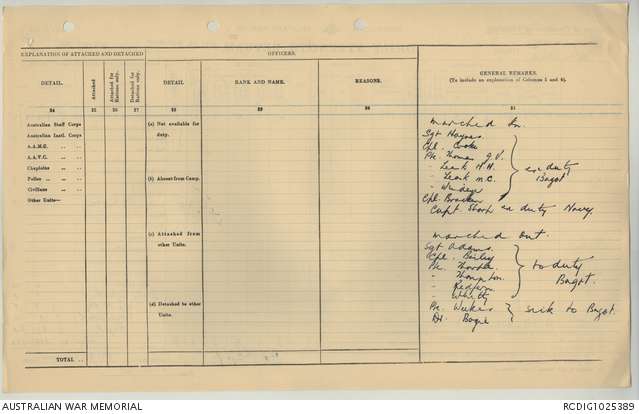 EXPLANATION OF ATTACHED AND DETACHED
OFFICERS.
GENERAL REMARKS.
(To include an explanation of Columns 5 and 6).
DETAIL.
Attached
Attached for Rations only.
Detached for Rations only.
DETAIL
RANK AND NAME.
REASONS.
24
25
26
27
28
29
30
31
Australian Staff Corps
Australian Instl. Corps
A.A.M.C. „ „
A.A.V.C. „ „
Chaplains „ „
Police „ „
Civilians „ „
Other Units—
(a) Not available for duty.
(b) Absent from Camp.
(c) Attached from other Units.
(d) Detached to other Units.
TOTAL ..
marched In.
Sgt Haynes
Cpl. Cooke
Pte Thomas G.V.
" Leask H.H.
" Leask M.C.
"
Cpl. Bracken
ex duty Bagot
Capt Stork ex duty Navy.
marched out.
Sgt Adams.
Cpl. Bailey
Pte.
" Thompson
" Redfern
" Whitty
to duty Bagot.
Pte Weekes
Dr. Bogie
sick to Bagot.
AUSTRALIAN WAR MEMORIAL
RCDIG1025389